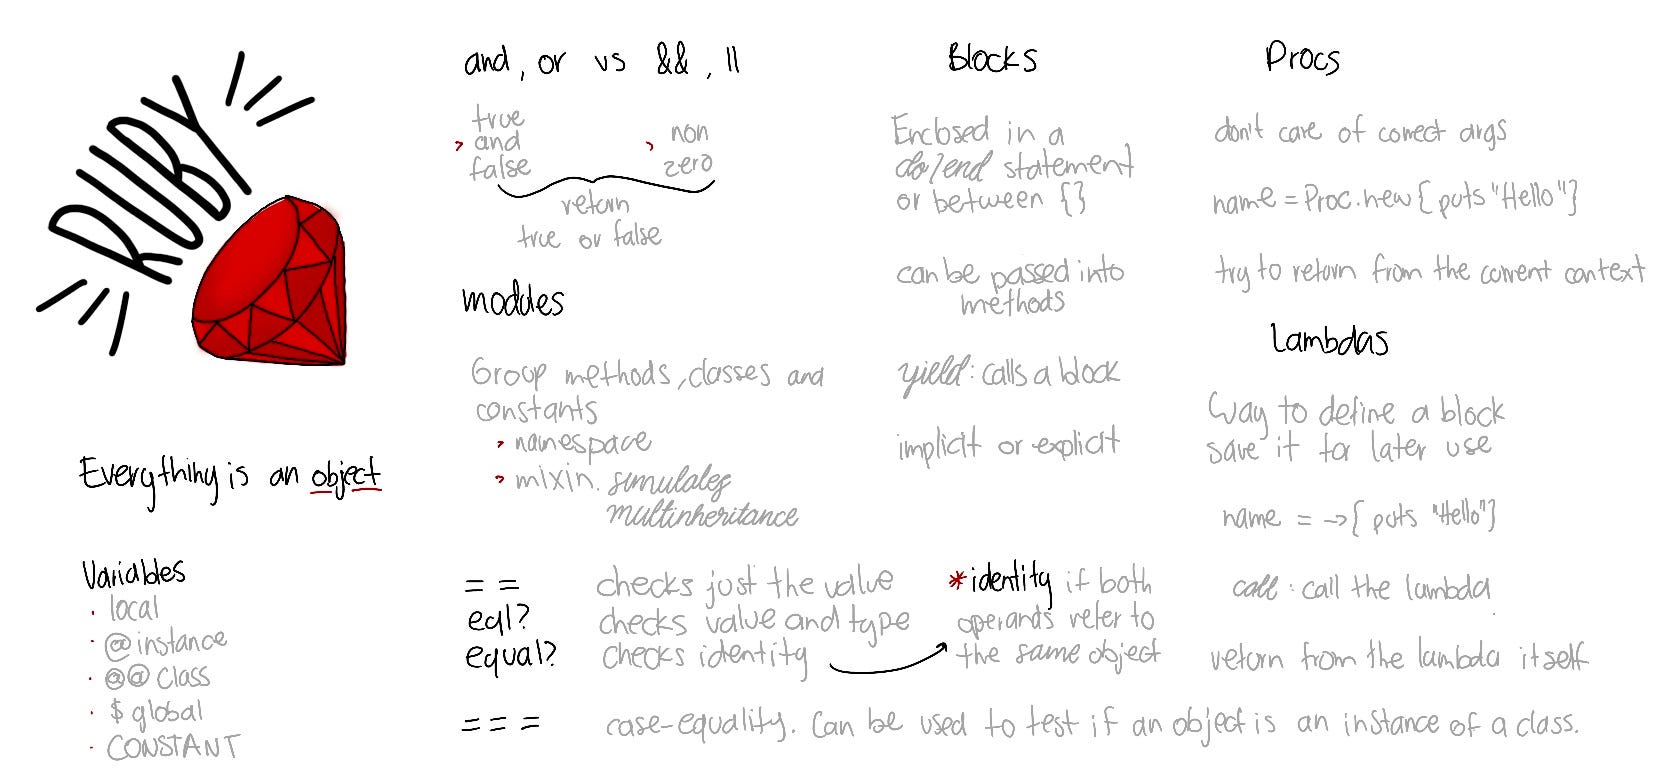 RUBY
Everything is an object
Variables
· local
· @instance
· @@class
· $ global
· CONSTANT
and, or vs &&, ||
> true
and
false
> non
zero
return
true or false
modules
Group methods, classes and
constants
> namespace
> mixin. simulates
multinheritance
Blocks
Enclosed in a
do/end statement
or between {}
can be passed into
methods
yield: calls a block
implicit or explicit
Procs
don't care of correct args
name = Proc.new { puts "Hello" }
try to return from the current context
Lambdas
Way to define a block
save it for later use
name = -> { puts "Hello" }
call: call the lambda
return from the lambda itself
== checks just the value
eql? checks value and type
equal? checks identity
*identity if both
operands refer to
the same object
=== case-equality. Can be used to test if an object is an instance of a class.